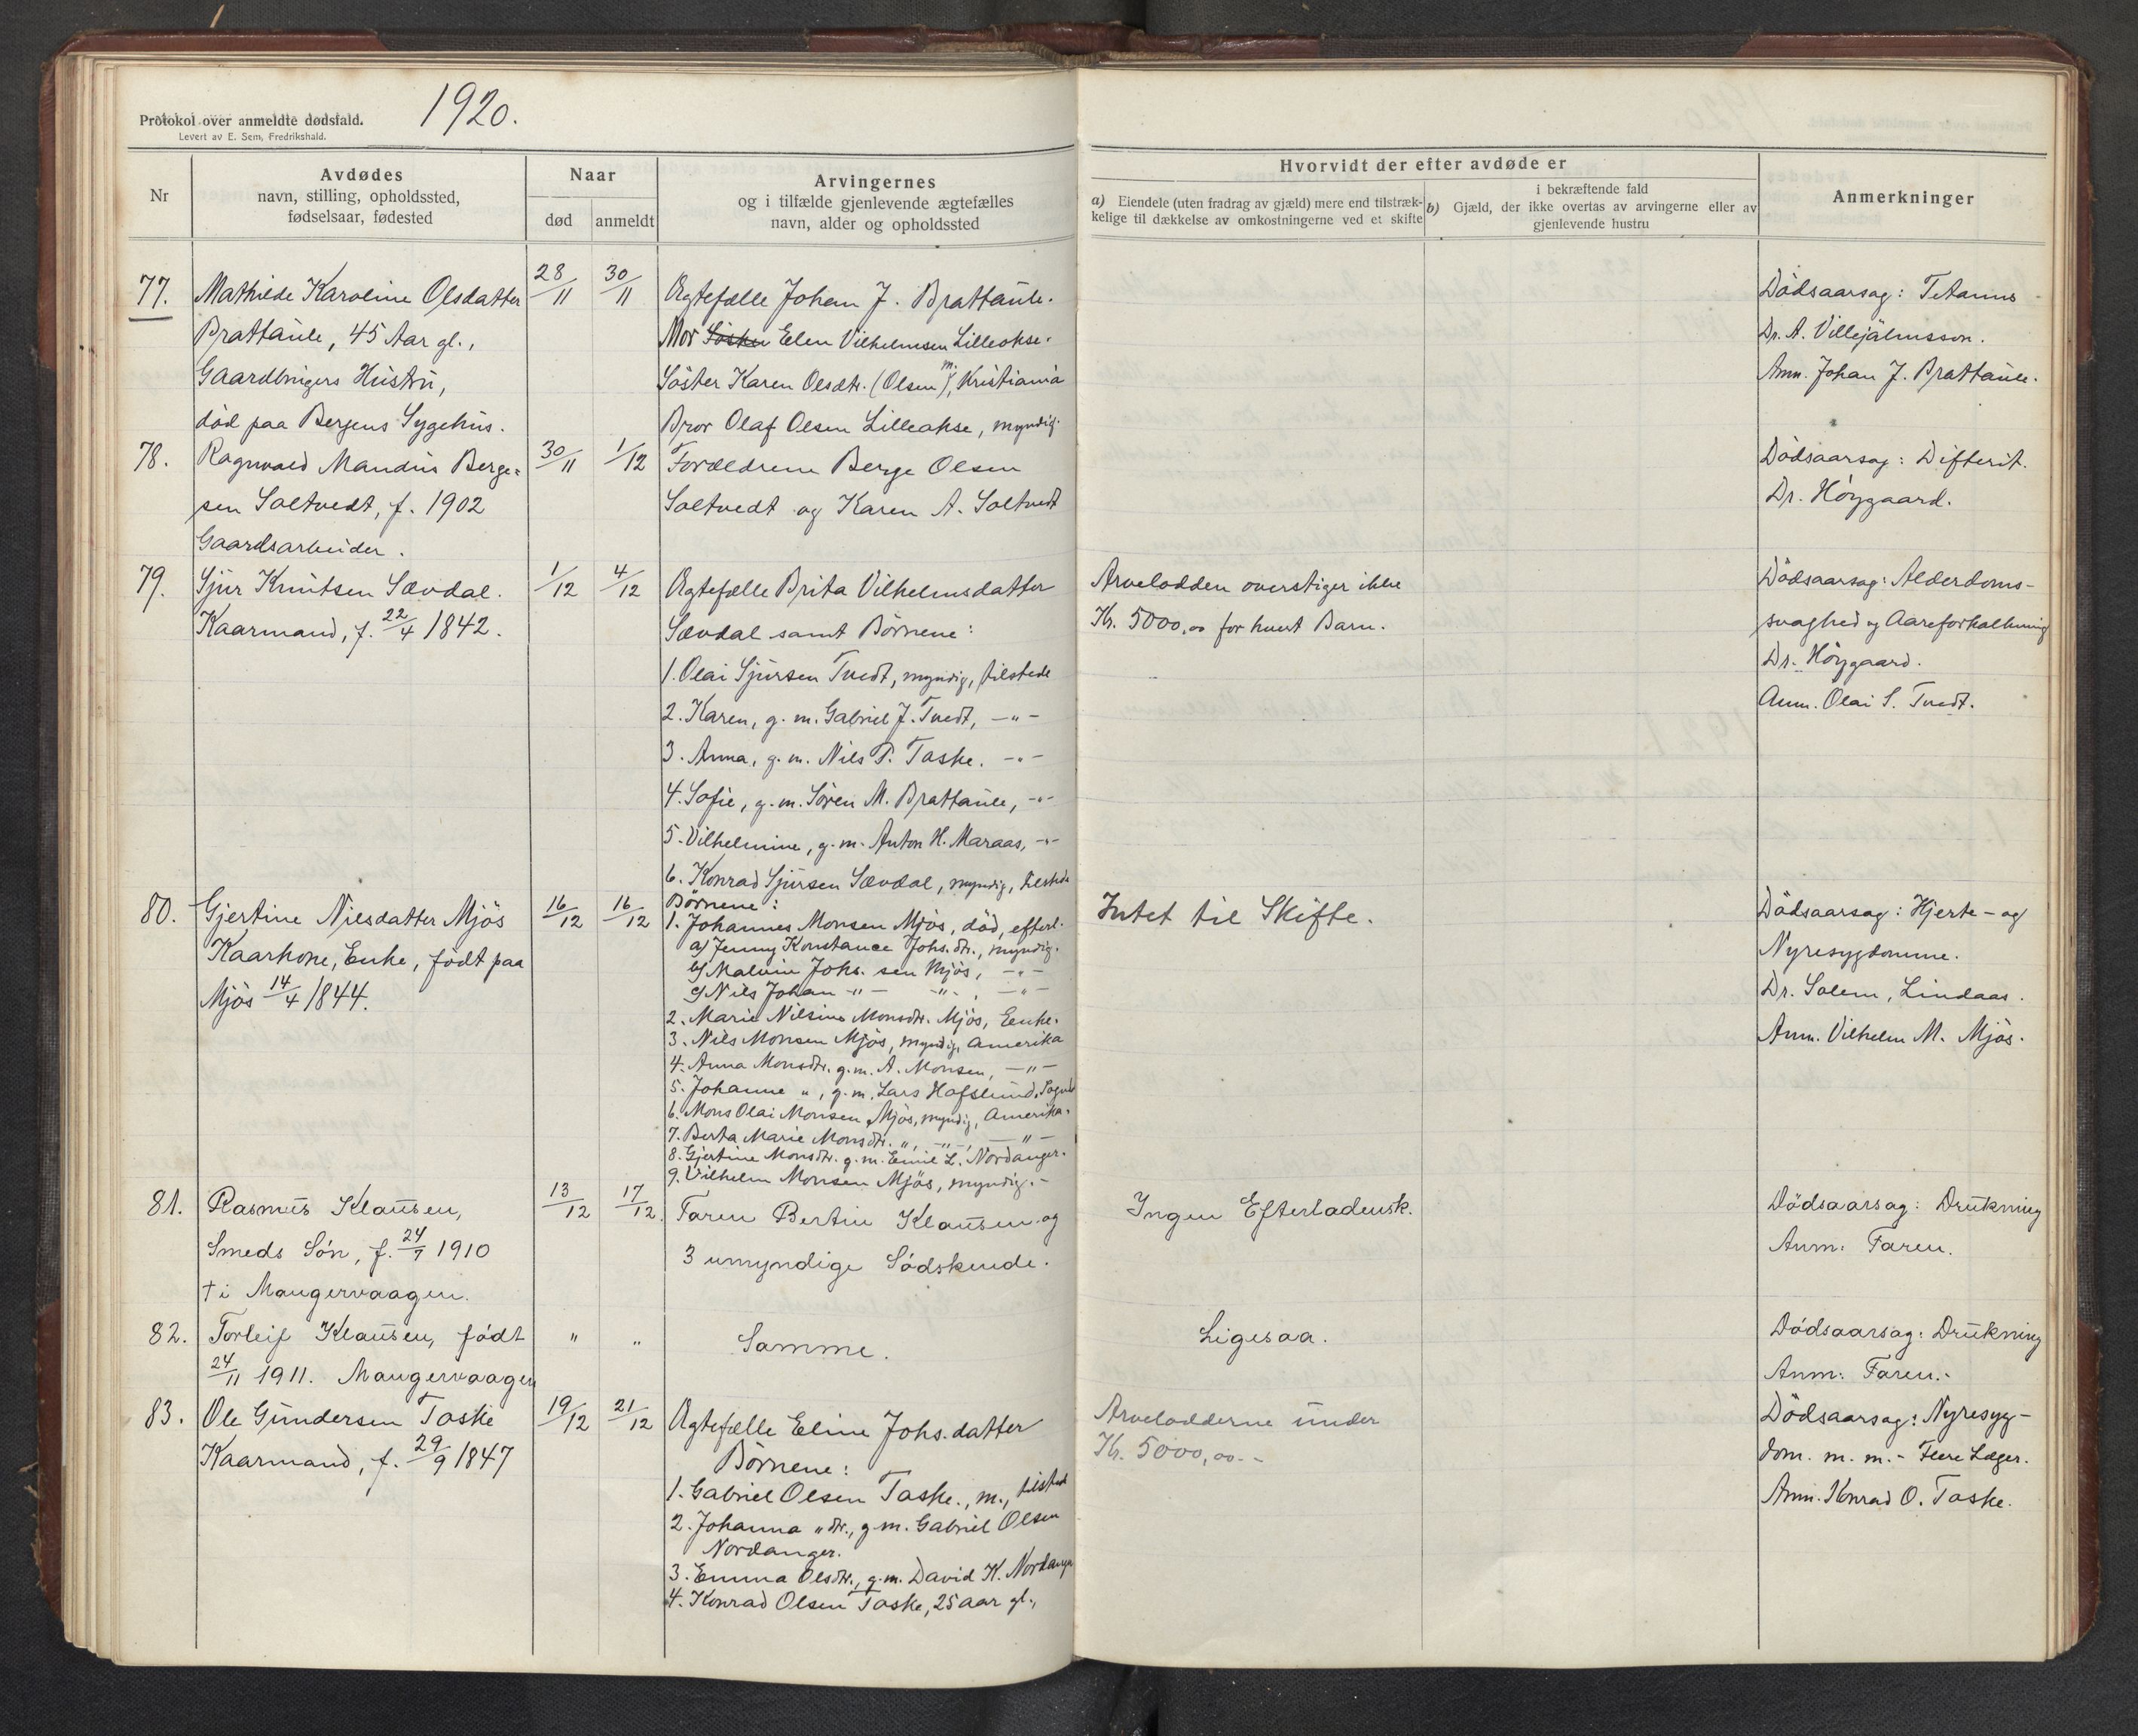 Protokol over anmeldte dødsfald.
1920.
Levert av E. Sem, Fredrikshald.
Nr
Avdødes
navn, stilling, opholdssted,
fødselsaar, fødested
Naar
død
anmeldt
Arvingernes
og i tilfælde gjenlevende ægtefælles
navn, alder og opholdssted
Hvorvidt der efter avdøde er
a) Eiendele (uten fradrag av gjæld) mere end tilstræk-
kelige til dækkelse av omkostningerne ved et skifte
i bekræftende fald
b) Gjæld, der ikke overtas av arvingerne eller av
gjenlevende hustru
Anmerkninger
77.
Mathilde Karoline Olsdatter
Brattaule, 45 Aar gl.,
Gaardbrugers Hustru,
død paa Bergens Sygehus.
28/11
30/11
Ægtefælle Johan J. Brattaule.
Mor Elen Vilhelmsen Lilleokse.
Søster Karen Olsdtr. (Olsen), m., Kristiania
Bror Olaf Olsen Lilleokse, myndig.
Dødsaarsag: Tetanus
Dr. A. Villejälmsson.
Anm. Johan J. Brattaule.
78.
Ragnvald Mandius Berge=
sen Soltvedt, f. 1902
Gaardsarbeider.
30/11
1/12
Forældrene Berge Olsen
Soltvedt og Karen A. Soltvedt
Dødsaarsag: Difterit.
Dr. Høygaard.
79.
Sjur Knutsen Sævdal.
Kaarmand, f. 22/4 1842.
1/12
4/12
Ægtefælle Brita Vilhelmsdatter
Sævdal samt Børnene:
1. Olai Sjursen Tvedt, myndig, tilstede
2. Karen, g. m. Gabriel J. Tvedt, -"-
3. Anna, g. m. Nils P. Toske. -"-
4. Sofie, g. m. Søren M. Brattaule, -"-
5. Vilhelmine, g. m. Anton H. Maraas, -"-
6. Konrad Sjursen Sævdal, myndig, tilstede
Arvelodden overstiger ikke
Kr. 5000,00 for hvert Barn.
Dødsaarsag: Alderdoms-
svaghed og Aareforkalkning
Dr. Høygaard.
Anm. Olai S. Tvedt.
80.
Gjertine Nilsdatter Mjøs
Kaarkone, Enke, født paa
Mjøs 14/4 1844.
16/12
16/12
Børnene:
1. Johannes Monsen Mjøs, død, efterl.
a) Jenny Konstance Johs.dtr., myndig.
b) Malvin Johs. sen Mjøs, -"-
c) Nils Johan -"- -"-, -"-
2. Marie Nilsine Monsdtr. Mjøs, Enke.
3. Nils Monsen Mjøs, myndig, Amerika
4. Anna Monsdtr. g. m. A. Monsen, -"-
5. Johanne ", g. m. Lars Hafslund, Sogn
6. Mons Olai Monsen Mjøs, myndig, Amerika.
7. Berta Marie Monsdtr. ", -"-, -"-
8. Gjertine Monsdtr. g. m. Emil L. Nordanger.
9. Vilhelm Monsen Mjøs, myndig.-
Intet til Skifte.
Dødsaarsag: Hjerte- og
Nyresygdomme.
Dr. Solem, Lindaas.
Anm. Vilhelm M. Mjøs.
81.
Rasmus Klausen,
Smeds Søn, f. 24/7 1910
† i Mangervaagen.
13/12
17/12.
Faren Bertin Klausen og
3 umyndige Sødskende.
Ingen Efterladensk.
Dødsaarsag: Drukning
Anm: Faren.
82.
Torleif Klausen, født
24/11 1911. Mangervaagen
"
"
Samme.
Ligesaa.
Dødsaarsag: Drukning
Anm: Faren.-
83.
Ole Gundersen Toske
Kaarmand, f. 29/9 1847
19/12
21/12
Ægtefælle Eline Johs.datter
Børnene:
1. Gabriel Olsen Toske., m., tilstede
2. Johanna "dtr., g. m. Gabriel Olsen
Nordanger.
3. Emma Olsdtr., g. m. David K. Nordanger
4. Konrad Olsen Toske, 25 aar gl.,
Arvelodderne under
Kr. 5000,00.-
Dødsaarsag: Nyresyg-
dom. m. m.- Flere Læger.
Anm. Konrad O. Toske.